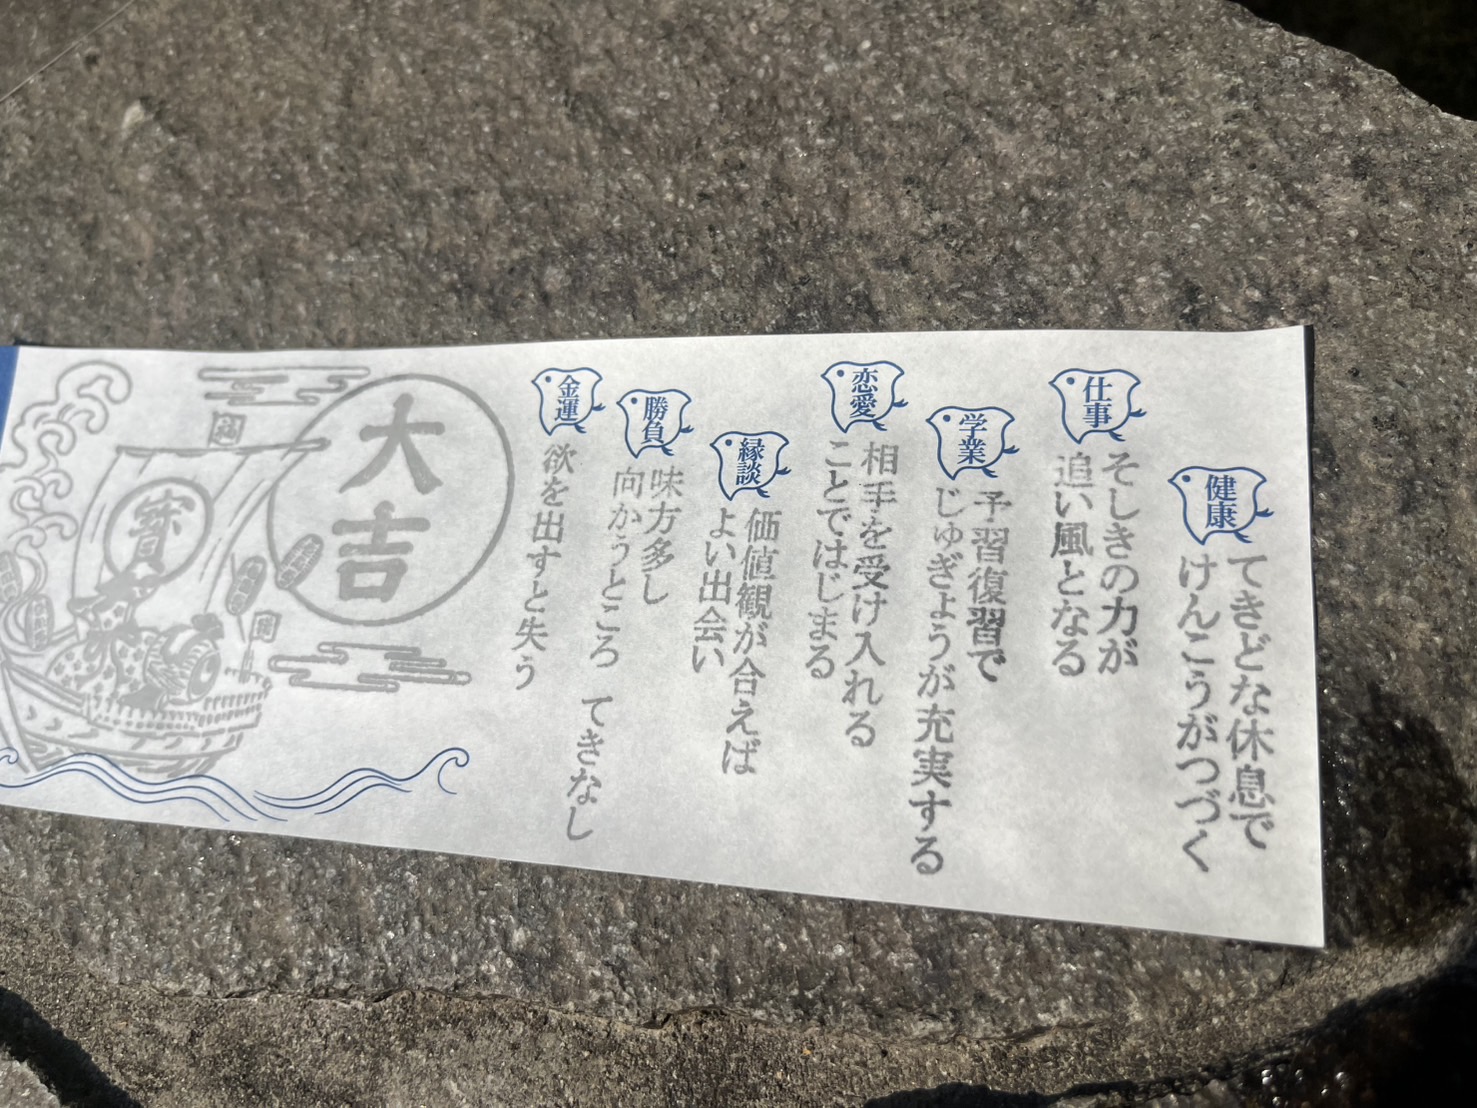 健康
てきどな休息で
けんこうがつづく
仕事
そしきの力が
追い風となる
学業
予習復習で
じゅぎょうが充実する
恋愛
相手を受け入れる
ことではじまる
縁談
価値観が合えば
よい出会い
勝負
味方多し
向かうところ てきなし
金運
欲を出すと失う
大吉
福
寳